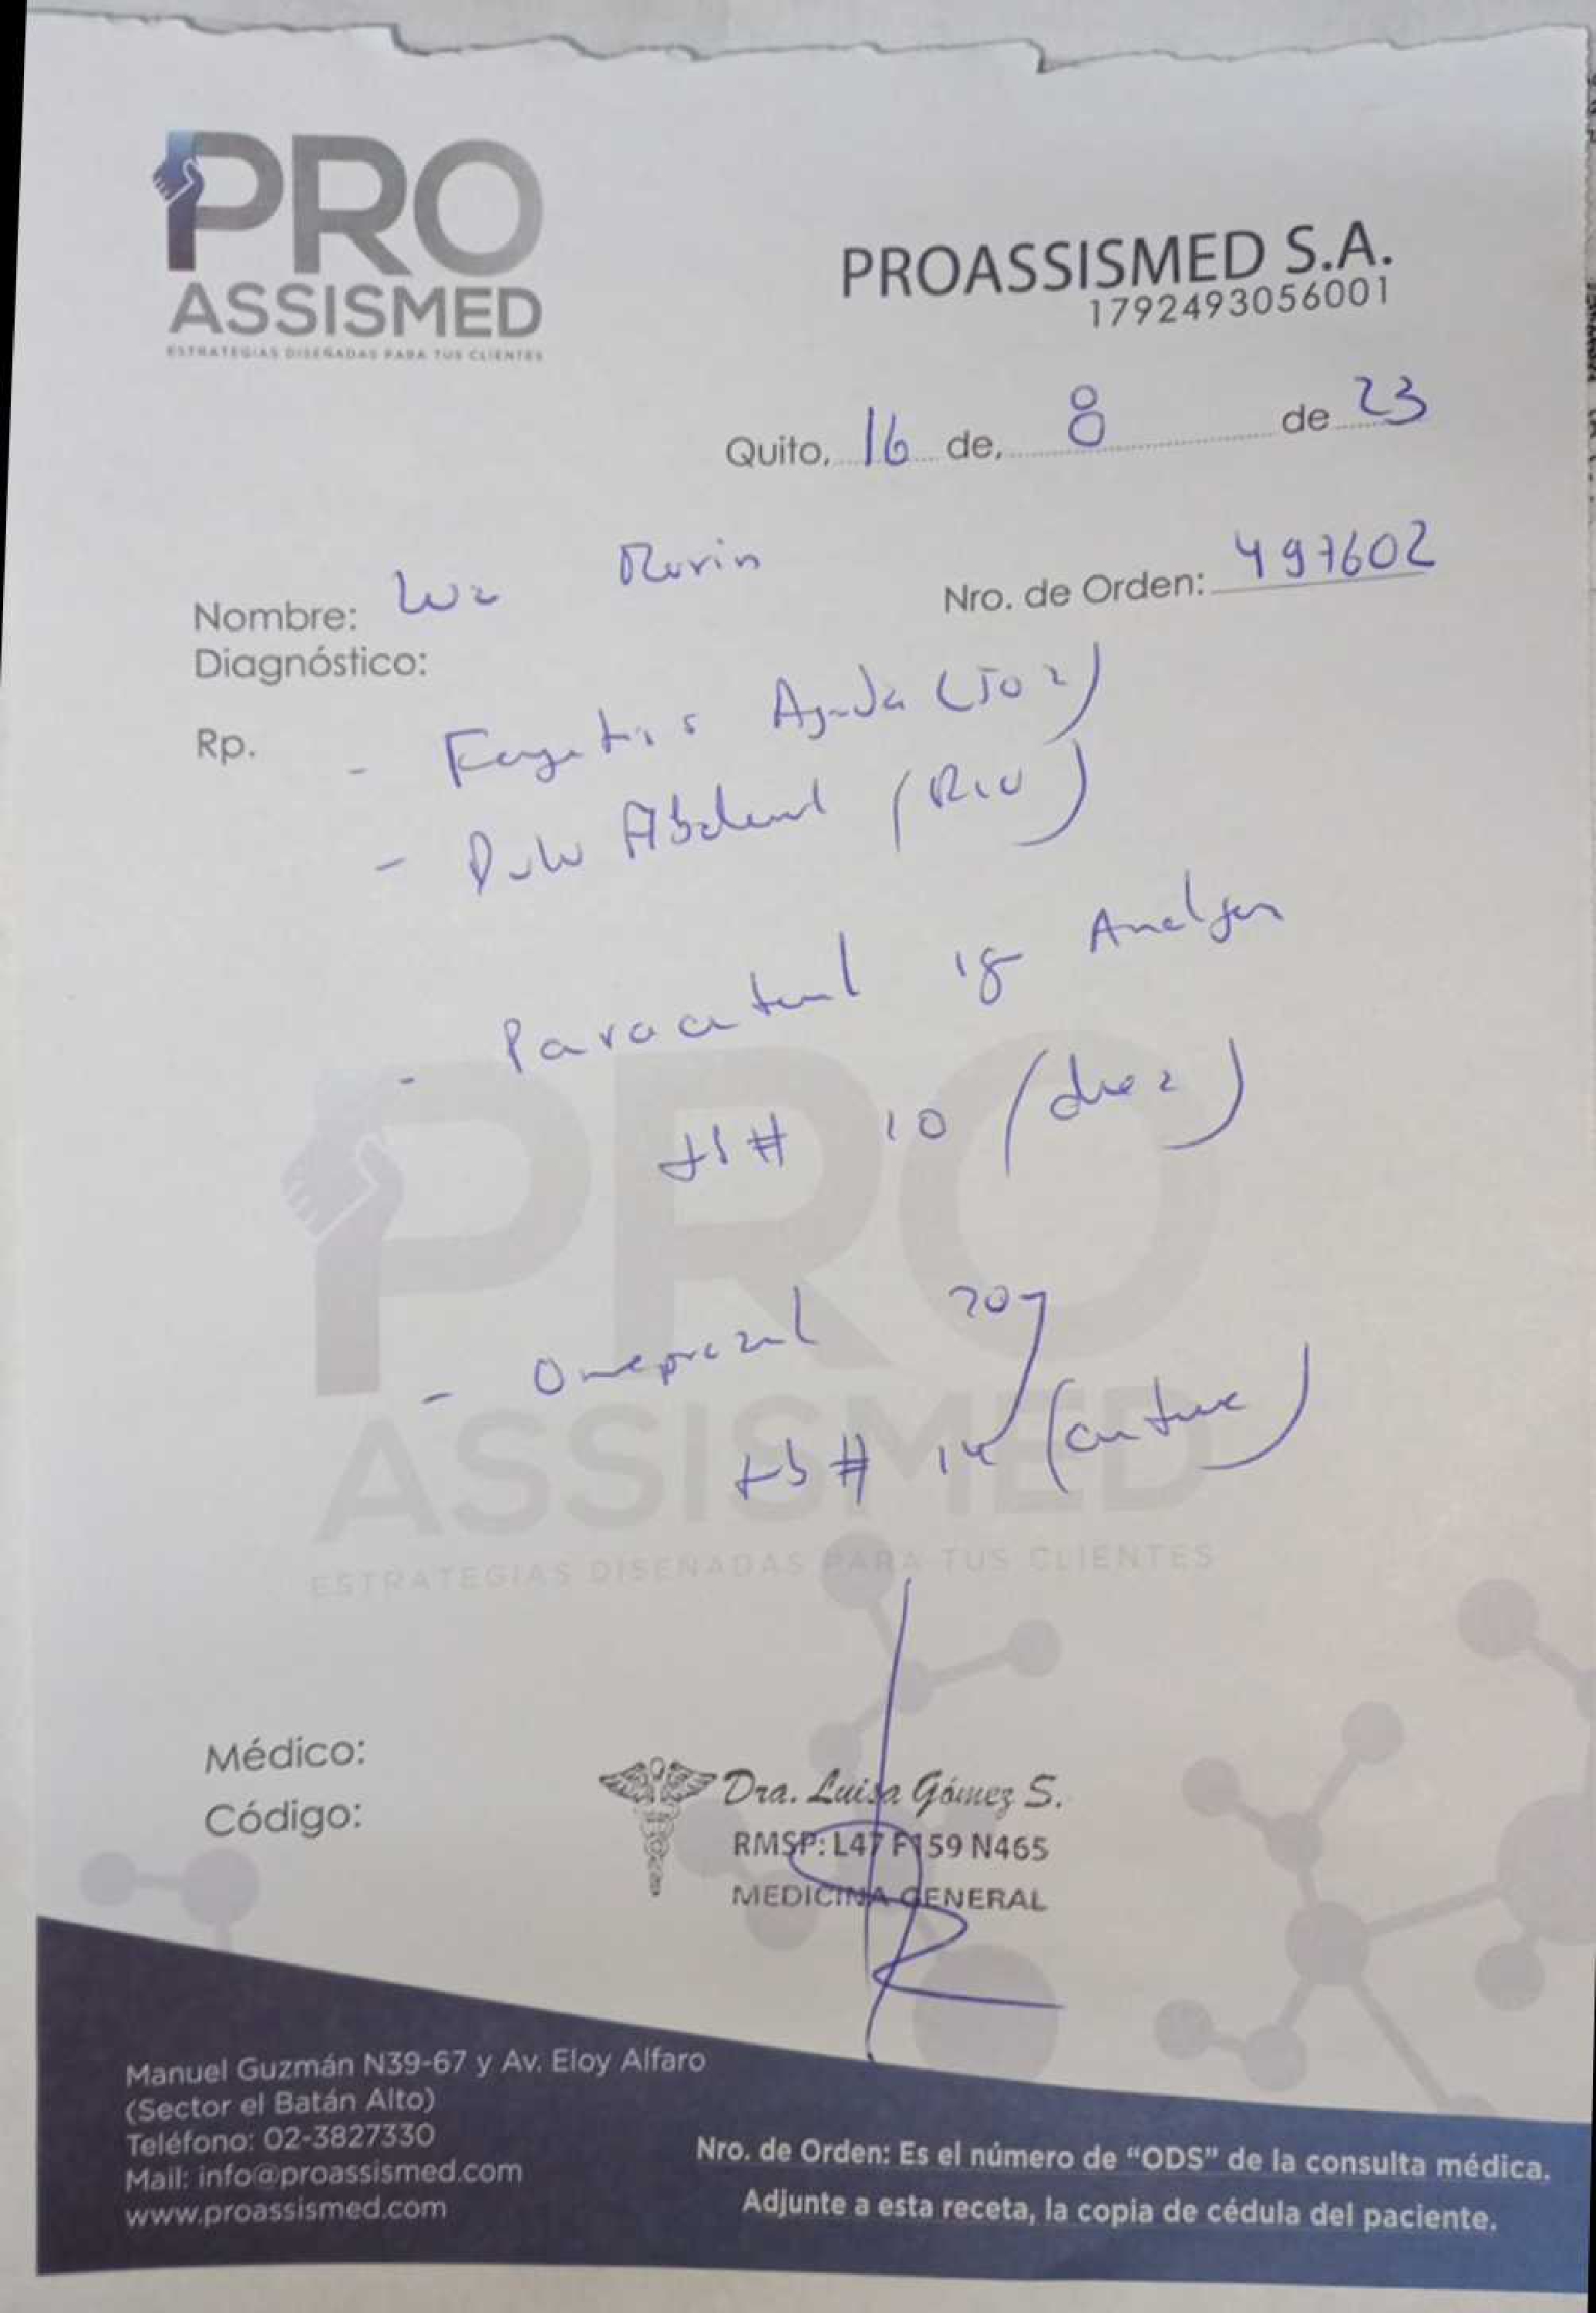 PRO
ASSISMED
ESTRATEGIAS DISEÑADAS PARA TUS CLIENTES
PROASSISMED S.A.
1792493056001
Quito, 16 de, 8 de 23
Nombre: Luz
Nro. de Orden: 497602
Diagnóstico:
Rp.
- Faringitis Aguda (J02)
- Dolor Abdominal (R10)
- Paracetamol 1g
tb # 10 (diez)
- Omeprazol 20mg
tb # 14 (catorce)
PRO
ASSISMED
ESTRATEGIAS DISEÑADAS PARA TUS CLIENTES
Médico:
Código:
Dra. Luisa Gómez S.
RMSP: L47 F159 N465
MEDICINA GENERAL
Manuel Guzmán N39-67 y Av. Eloy Alfaro
(Sector el Batán Alto)
Teléfono: 02-3827330
Mail: info@proassismed.com
www.proassismed.com
Nro. de Orden: Es el número de "ODS" de la consulta médica.
Adjunte a esta receta, la copia de cédula del paciente.